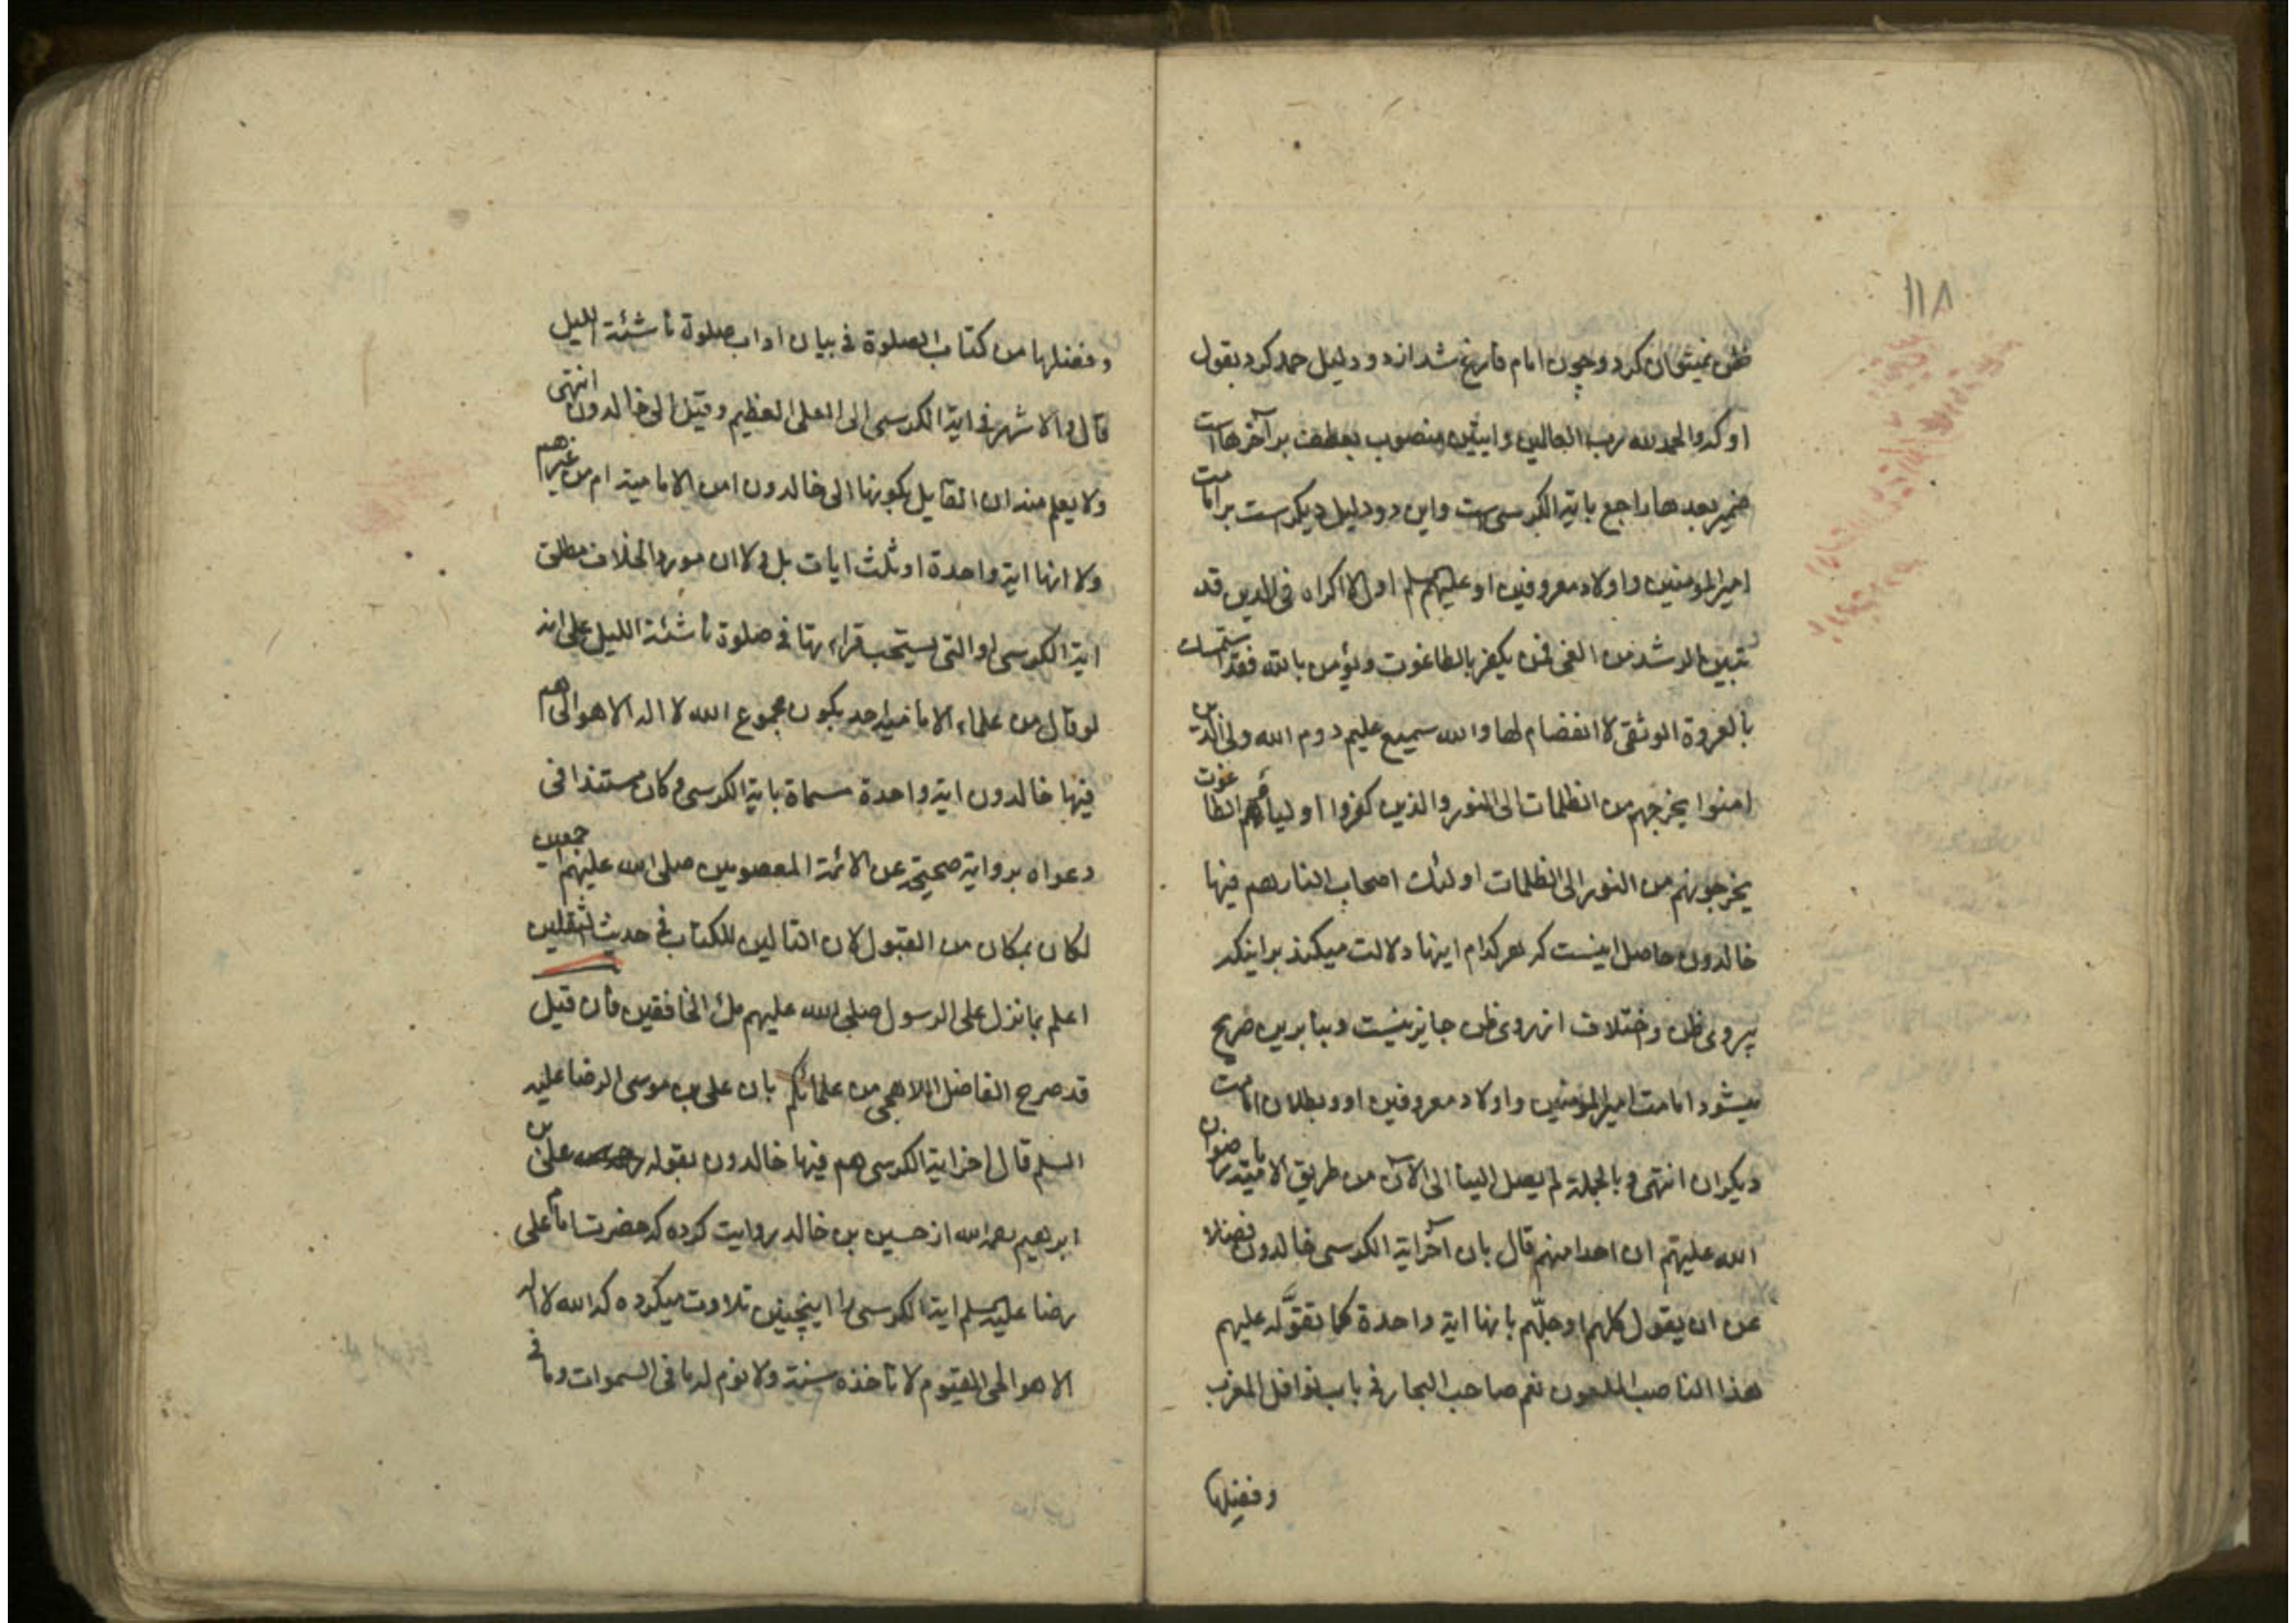 ١١٨
ظن نمیتوان کرد و چون امام فارغ شد از دو دلیل حمد کرد بقول
او که والحمد لله رب العالمین وایتین منصوب بعطف بر آخرها است
ضمیر بعدها راجع بایة الکرسی ست واین دو دلیل دیکرست بر امامت
امیرالمومنین واولاد معروفین او علیهم السلم اول لا اکراه فی الدین قد
تبین الرشد من الغی فمن یکفر بالطاغوت ویؤمن بالله فقد استمسک
بالعروة الوثقی لا انفصام لها والله سمیع علیم دوم الله ولی الذین
امنوا یخرجهم من الظلمات الی النور والذین کفروا اولیاؤهم الطاغوت
یخرجونهم من النور الی الظلمات اولئک اصحاب النار هم فیها
خالدون حاصل اینست که هر کدام اینها دلالت میکند بر اینکه
پیروی ظن واختلاف از روی ظن جایز نیست وبنابرین صریح
میشود امامت امیرالمؤمنین واولاد معروفین او وبطلان امامت
دیکران انتهی وبالجملة لم یصل الینا الی الآن من طریق الامامیة رضوان
الله علیهم ان احدا منهم قال بان آخر ایة الکرسی خالدون فضلا
عن ان یقول کلهم او جلّهم بانها ایة واحدة کما تقوّله علیهم
هذا الناصب الملعون نعم صاحب البحار فی باب نوافل المغرب
وفضلها
وفضلها من کتاب الصلوة فی بیان اداب صلوة ناشئة اللیل
قال والاشهر فی ایة الکرسی الی العلی العظیم وقیل الی خالدون انتهی
ولا یعلم منه ان القایل بکونها الی خالدون امن الامامیة ام من غیرهم
ولا انها ایة واحدة او ثلث ایات بل ولا ان مورد الخلاف مطلق
ایة الکرسی او التی یستحب قراءتها فی صلوة ناشئة اللیل علی انه
لو قال من علماء الامامیة احد بکون مجموع الله لا اله الا هو الی هم
فیها خالدون ایة واحدة مسماة بایة الکرسی وکان مستندا فی
دعواه بروایة صحیحة عن الائمة المعصومین صلی الله علیهم اجمعین
لکان بمکان من القبول لان التالین للکتاب فی حدیث الثقلین
اعلم بما نزل علی الرسول صلی الله علیهم ملئ الخافقین فان قیل
قد صرح الفاضل اللاهجی من علمائکم بان علی بن موسی الرضا علیه
السلم قال اخر ایة الکرسی هم فیها خالدون بقوله علی بن
ابرهیم رحمه الله از حسین بن خالد روایت کرده که حضرت امام علی
رضا علیه السلم ایة الکرسی را اینچنین تلاوت میکرده که الله لا اله
الا هو الحی القیوم لا تاخذه سنة ولا نوم له ما فی السموات وما فی